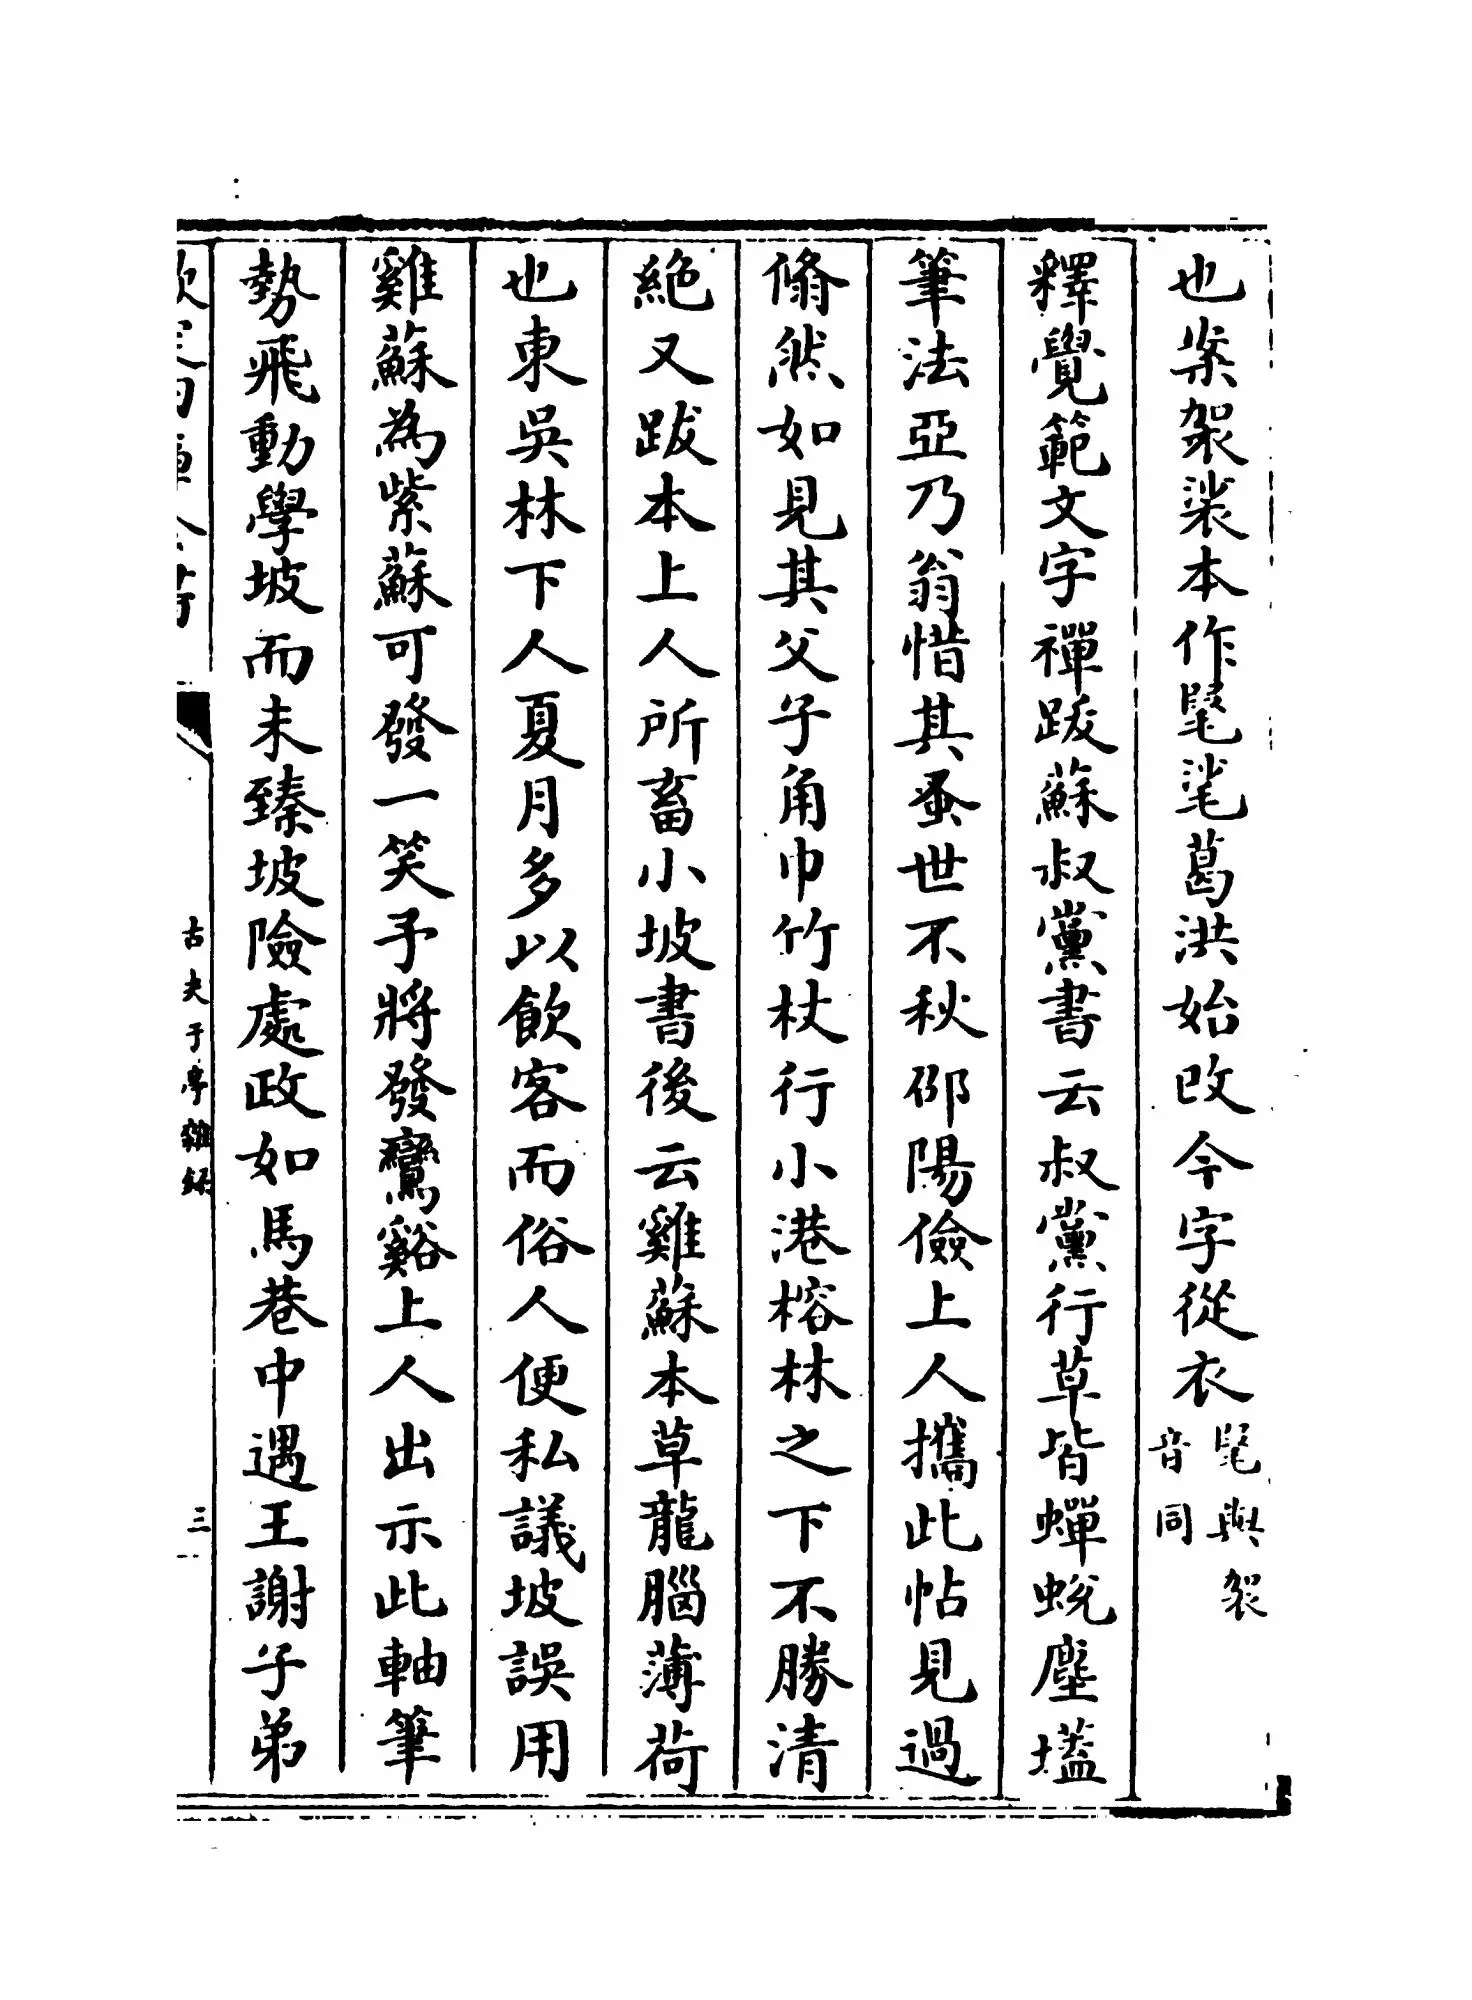 也案袈裟本作毠㲚葛洪始改今字從衣毠與袈音同
釋覺範文字禪跋蘇叔黨書云叔黨行草皆蟬蛻塵壒
筆法亞乃翁惜其蚤世不秋邵陽儉上人攜此帖見過
翛然如見其父子角巾竹杖行小港榕林之下不勝清
絶又跋本上人所畜小坡書後云雞蘇本草龍腦薄荷
也東吳林下人夏月多以飲客而俗人便私議坡誤用
雞蘇為紫蘇可發一笑予將發鸞谿上人出示此軸筆
勢飛動學坡而未臻坡險處政如馬巷中遇王謝子弟
古夫于亭雜録
三